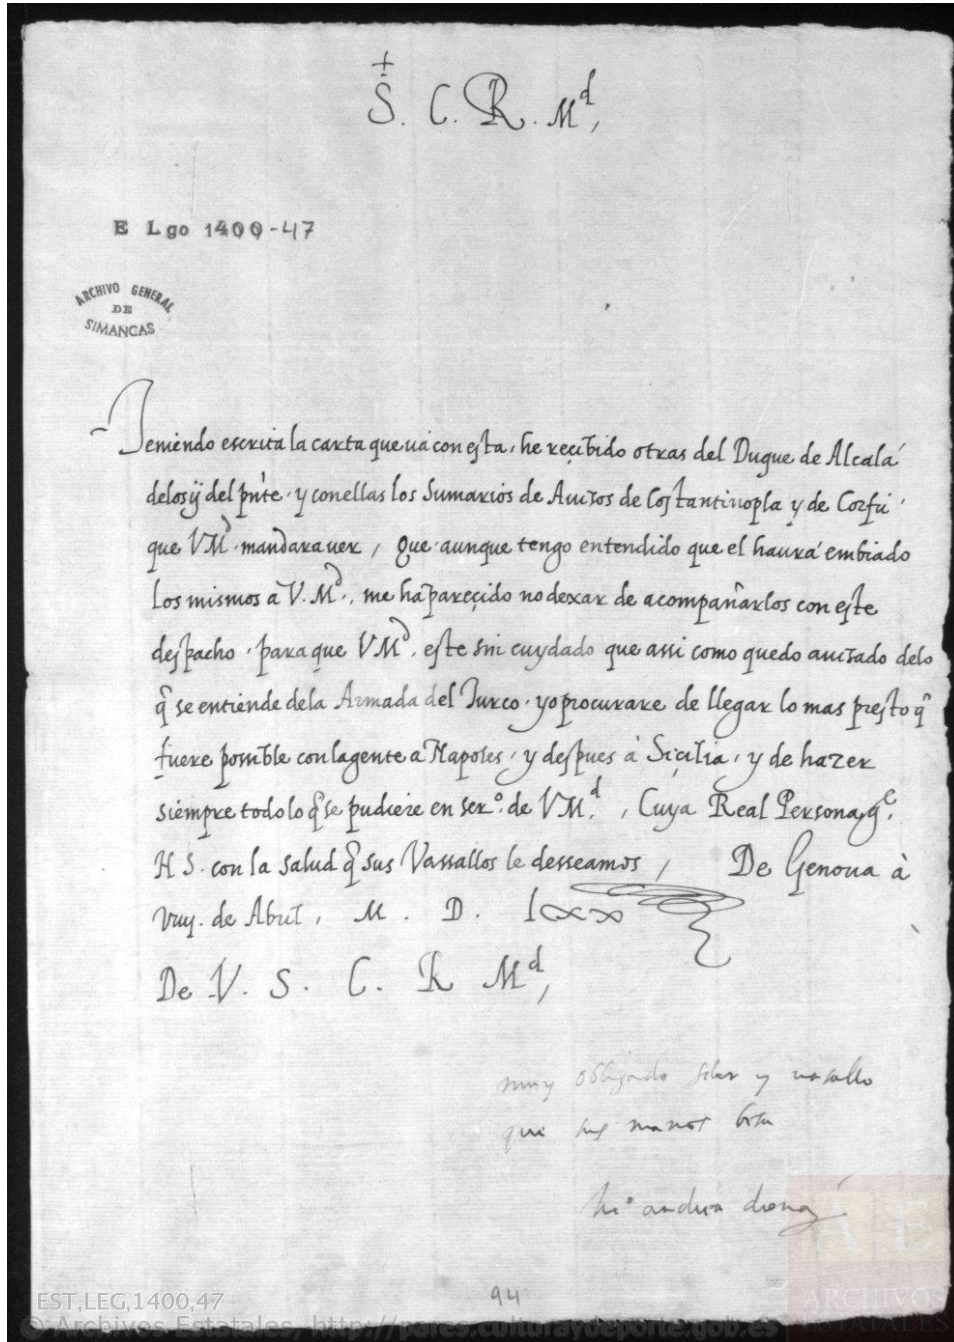 +
S. C. R. Md,
E Lgo 1400-47
ARCHIVO GENERAL
DE
SIMANCAS
Teniendo escrita la carta que ua con esta, he reçibido otras del Duque de Alcalá
delos ij del pnte, y conellas los Sumarios de Auisos de Costantinopla y de Corfu
que VMd. mandara uer, Que aunque tengo entendido que el haurá embiado
los mismos a V. Md., me ha pareçido no dexar de acompañarlos con este
despacho, para que VMd. este sin cuydado que assi como quedo auisado delo
q̃ se entiende dela Armada del Turco, yo procurare de llegar lo mas presto q̃
fuere possible con la gente a Napoles, y despues à Siçilia, y de hazer
siempre todo lo q̃ se pudiere en ser.º de VMd., Cuya Real Persona g.e
N S. con la salud q̃ sus Vassallos le desseamos, De Genoua à
viij. de Abril, M. D. lxx
De V. S. C. R Md,
muy obligado y uasallo
que sus manos besa
andrea doria
94
EST,LEG,1400,47
© Archivos Estatales, http://pares.culturaydeporte.gob.es
AE
ARCHIVOS
ESTATALES